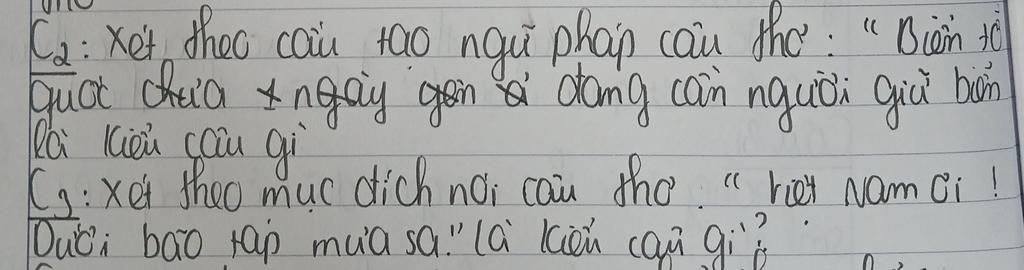 C2: Xét theo cấu tạo ngữ pháp câu thơ: "Biển tổ
quốc chưa ngày gen đang cần người giữ biển
là kiểu câu gì
C3: Xét theo mục đích nói câu thơ. "Việt Nam ơi!
Dưới bão táp mưa sa." là kiểu câu gì?